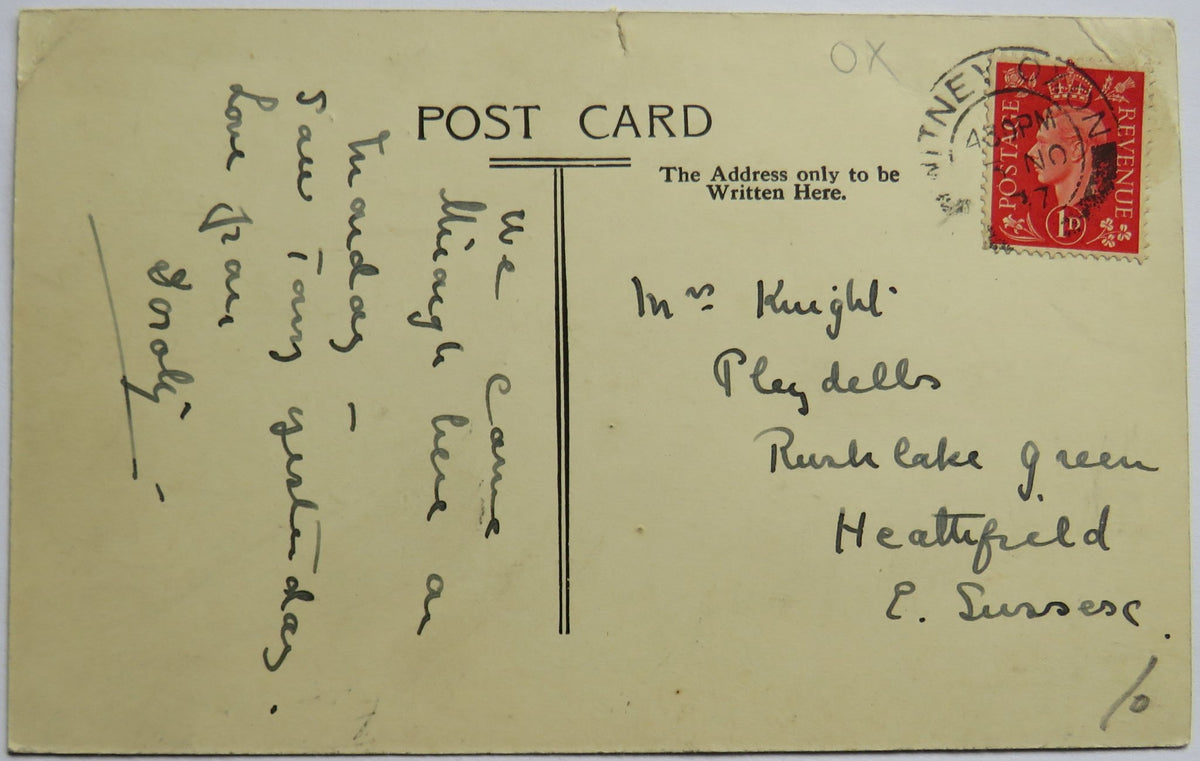 POST CARD
The Address only to be
Written Here.
We came
through here on
Monday –
Saw Tony yesterday.
Love from
Mrs Knight
Pleydells
Rushlake Green
Heathfield
E. Sussex.
OX
WITNEY OXON
45 PM
NO
37
POSTAGE
REVENUE
1D